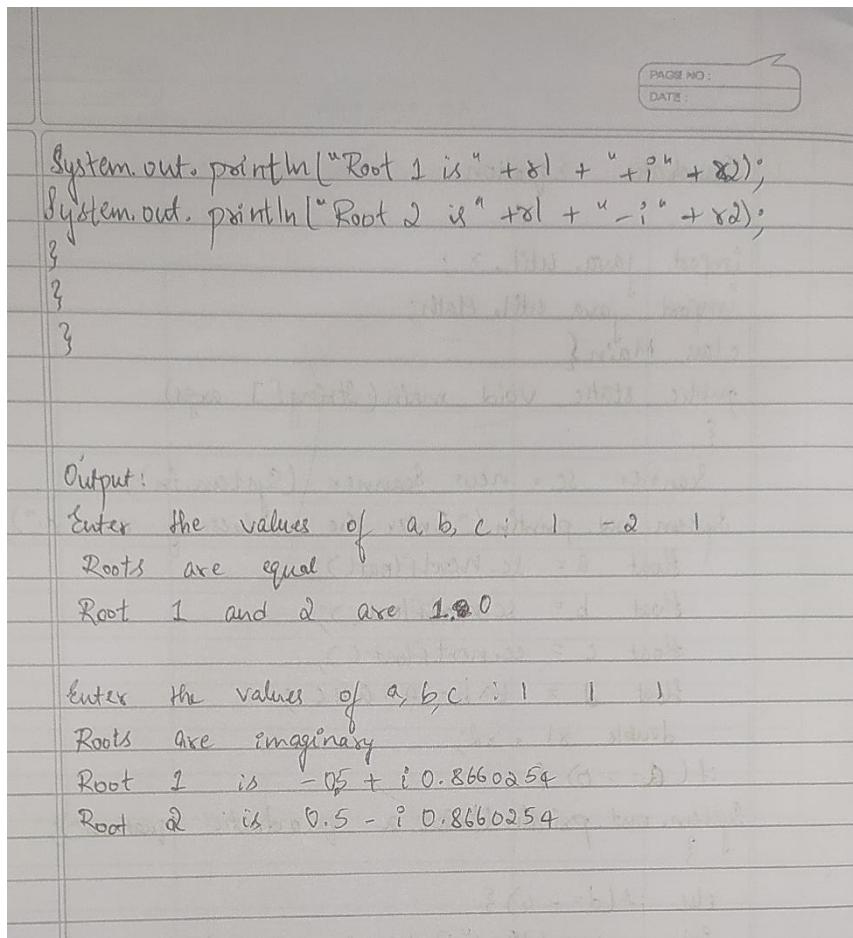 PAGE NO:
DATE:
System.out.println("Root 1 is" + r1 + "+i" + r2);
System.out.println("Root 2 is" + r1 + "-i" + r2);
}
}
}
Output:
Enter the values of a, b, c : 1 -2 1
Roots are equal
Root 1 and 2 are 1.0
Enter the values of a, b, c : 1 1 1
Roots are imaginary
Root 1 is -05 + i 0.8660254
Root 2 is 0.5 - i 0.8660254